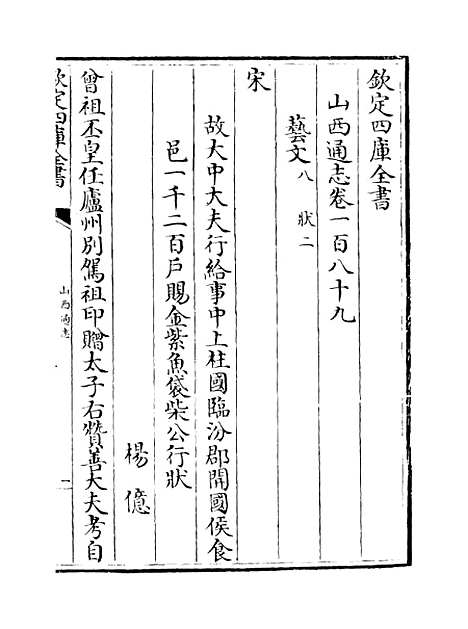 欽定四庫全書
山西通志卷一百八十九
藝文八 狀二
宋
故大中大夫行給事中上柱國臨汾郡開國侯食
邑一千二百戶賜金紫魚袋柴公行狀
楊億
曾祖丕皇任廬州別駕祖印贈太子右贊善大夫考自
欽定四庫全書
山西通志
一